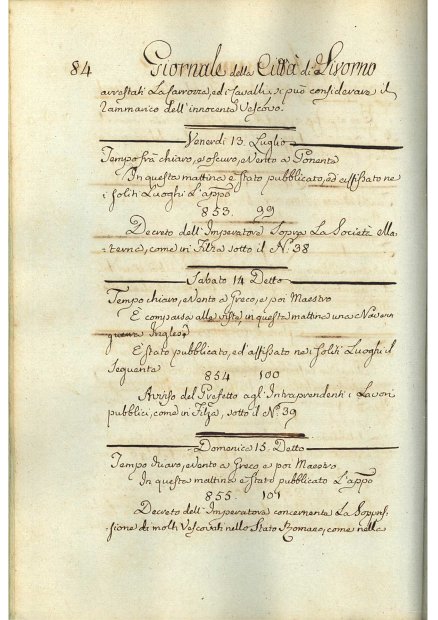 84 Giornale della Città di Livorno
arrestati la carrozza, ed i cavalli, si può considerare il
rammarico dell'innocente Vescovo.
Venerdì 13. Luglio
Tempo frà chiaro, e oscuro, e Vento a Ponente
In questa mattina è stato pubblicato, ed affissato ne
i soliti Luoghi L'appo
853. 99
Decreto dell'Imperatore sopra La Società Ma-
terna, come in Filza sotto il N.º 38
Sabato 14 Detto
Tempo chiaro, e Vento a Greco, e poi Maestro
È comparsa alla vista, in questa mattina una Nave in
guerra Inglese
È stato pubblicato, ed affissato nei soliti Luoghi il
seguente
854 100
Avviso del Prefetto agl'Intraprendenti i Lavori
pubblici, come in Filza, sotto il N.º 39
Domenica 15. Detto
Tempo chiaro, e Vento a Greco e poi Maestro
In questa mattina è stato pubblicato L'appo
855. 101
Decreto dell'Imperatore concernente La Soppres-
sione di molti Vescovati nello Stato Romano, come nella